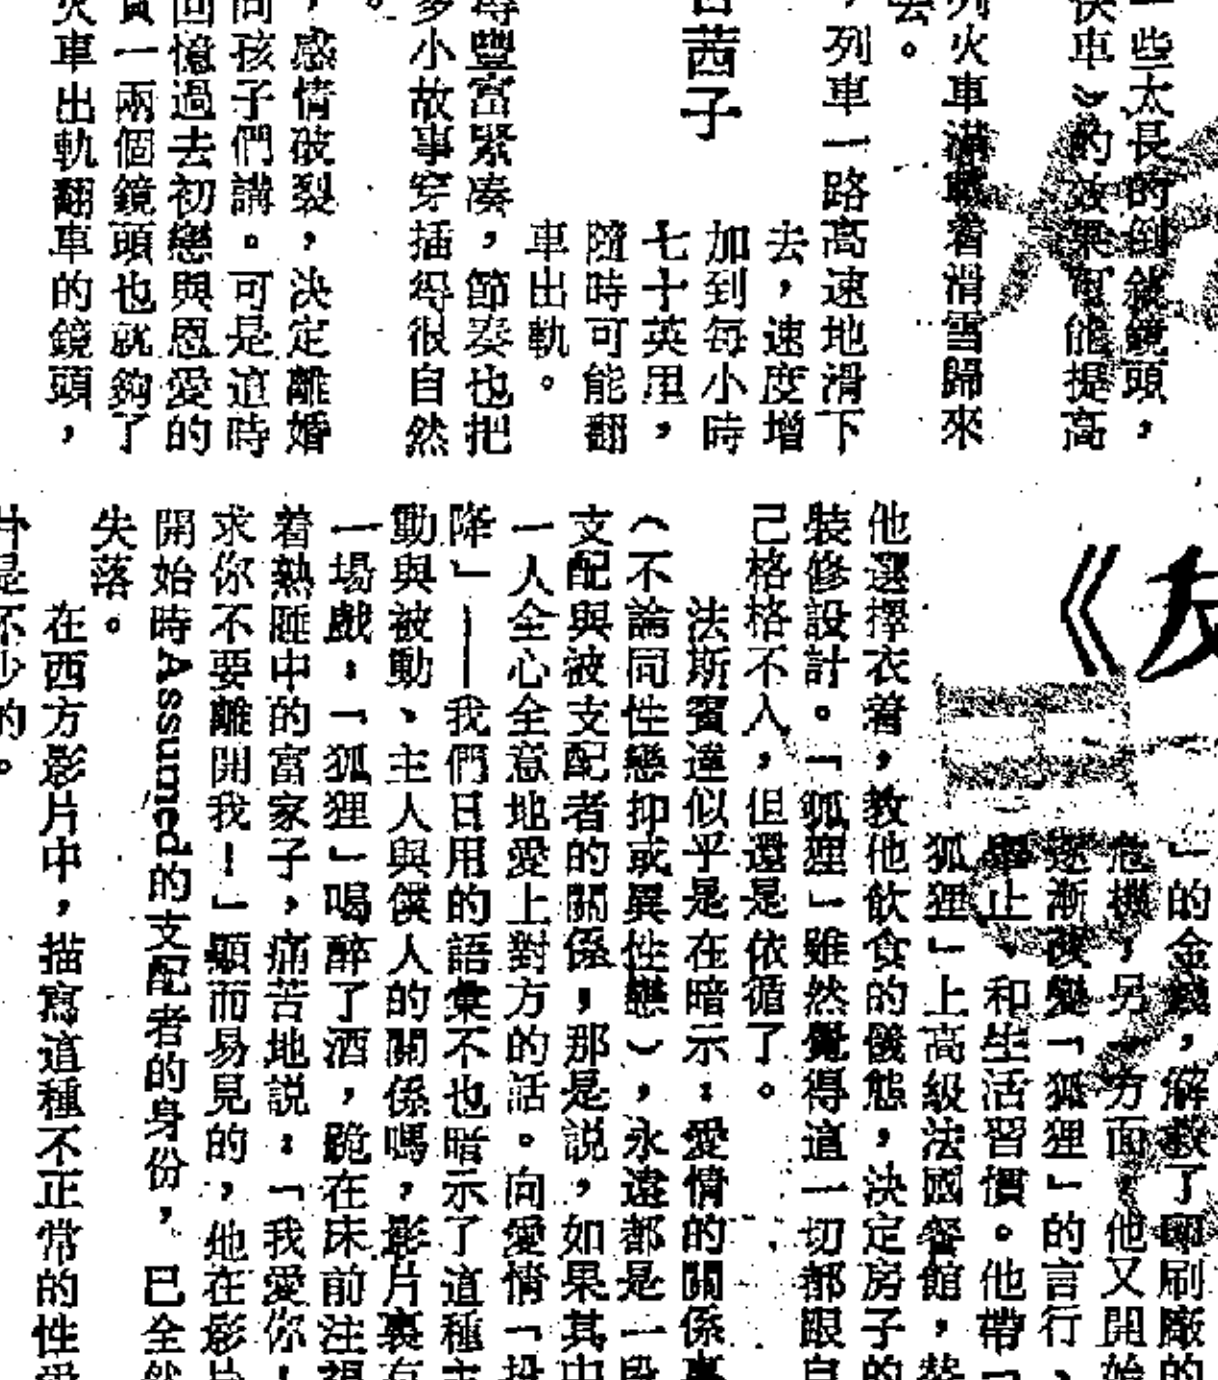 一些太長的倒敍鏡頭，
快車》的效果可能提高
列火車滿載着滑雪歸來
去。
，列車一路高速地滑下
去，速度增
加到每小時
七十英里，
隨時可能翻
車出軌。
茜子
得豐富緊凑，節奏也把
多小故事穿插得很自然
。
，感情破裂，決定離婚
向孩子們講。可是這時
回憶過去初戀與恩愛的
一兩個鏡頭也就夠了
火車出軌翻車的鏡頭，
《友
」的金錢，解救了印刷廠的
危機，另一方面，他又開始
逐漸改變「狐狸」的言行、
舉止、和生活習慣。他帶「
狐狸」上高級法國餐館，替
他選擇衣着，教他飲食的儀態，決定房子的
裝修設計。「狐狸」雖然覺得這一切都跟自
己格格不入，但還是依循了。
法斯賓達似乎是在暗示：愛情的關係裏
（不論同性戀抑或異性戀），永遠都是一段
支配與被支配者的關係，那是説，如果其中
一人全心全意地愛上對方的話。向愛情「投
降」——我們日用的語彙不也暗示了這種主
動與被動、主人與僕人的關係嗎，影片裏有
一場戲：「狐狸」喝醉了酒，跪在床前注視
着熟睡中的富家子，痛苦地説：「我愛你！
求你不要離開我！」顯而易見的，他在影片
開始時Assumed的支配者的身份，已全然
失落。
在西方影片中，描寫這種不正常的性愛
片是不少的。